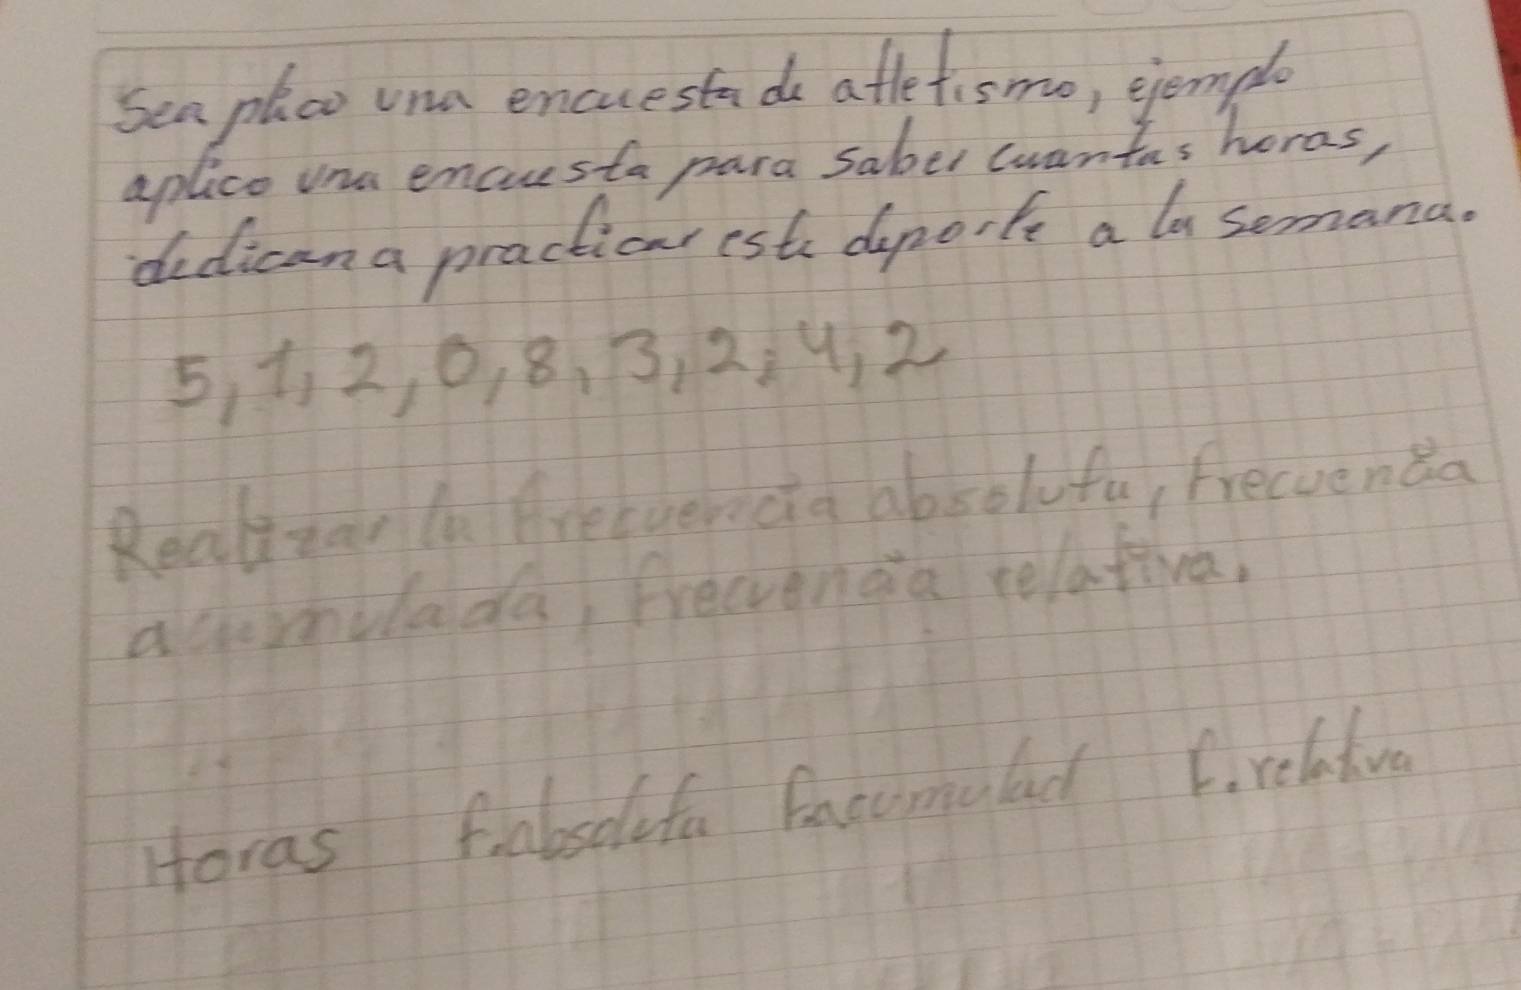 Sea plico una encuesta de atletismo, ejemplo
aplico una encuesta para saber cuantas horas,
dedican a practicar este deporte a la semana.
5, 1, 2, 0, 8, 3, 2, 4, 2
Realizar la frecuencia absoluta, frecuencia
acumulada, frecuencia relativa.
Horas f.absoluta F.acumulad F.relativa